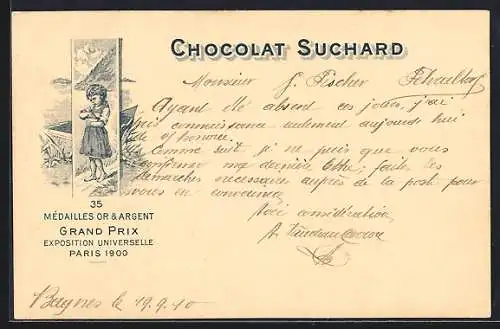 CHOCOLAT SUCHARD
Monsieur J. Fischer Fehraltorf
Ayant été absent ces jours, j'ai
pris connaissance seulement aujourd'hui
de l'honorée.
Comme suit je ne puis que vous
confirmer ma dernière faites les
démarches nécessaires auprès de la poste pour
vous en convaincre
considération
35
MÉDAILLES OR & ARGENT
GRAND PRIX
EXPOSITION UNIVERSELLE
PARIS 1900
le 19.9.10